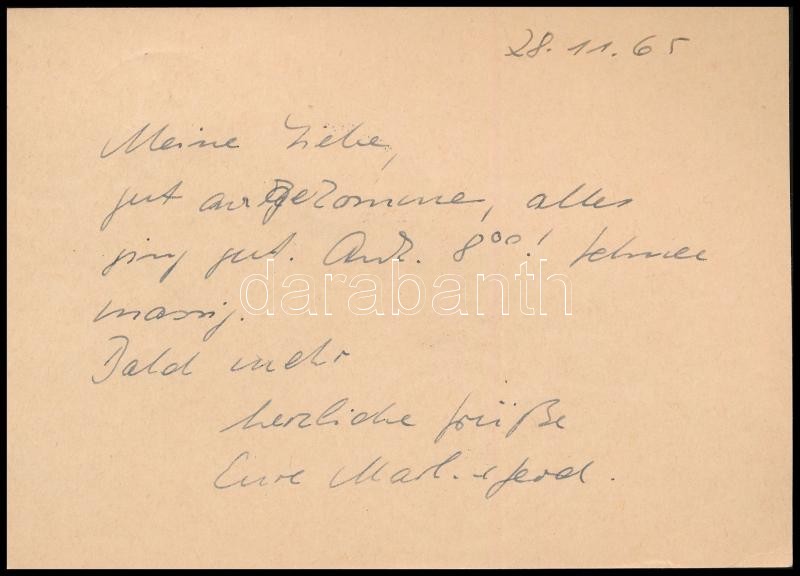 28.11.65
Meine Liebe,
gut angekommen, alles
ging gut. Ank. 8⁰⁰! Schnee
massig.
darabanth
Bald mehr
herzliche Grüße
Eure